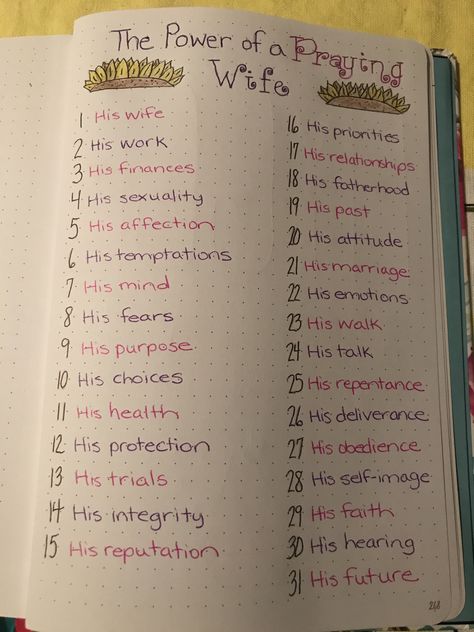 The Power of a Praying
Wife
1 His wife
2 His work
3 His finances
4 His sexuality
5 His affection
6 His temptations
7 His mind
8 His fears
9 His purpose
10 His choices
11 His health
12 His protection
13 His trials
14 His integrity
15 His reputation
16 His priorities
17 His relationships
18 His fatherhood
19 His past
20 His attitude
21 His marriage
22 His emotions
23 His walk
24 His talk
25 His repentance
26 His deliverance
27 His obedience
28 His self-image
29 His faith
30 His hearing
31 His future
248